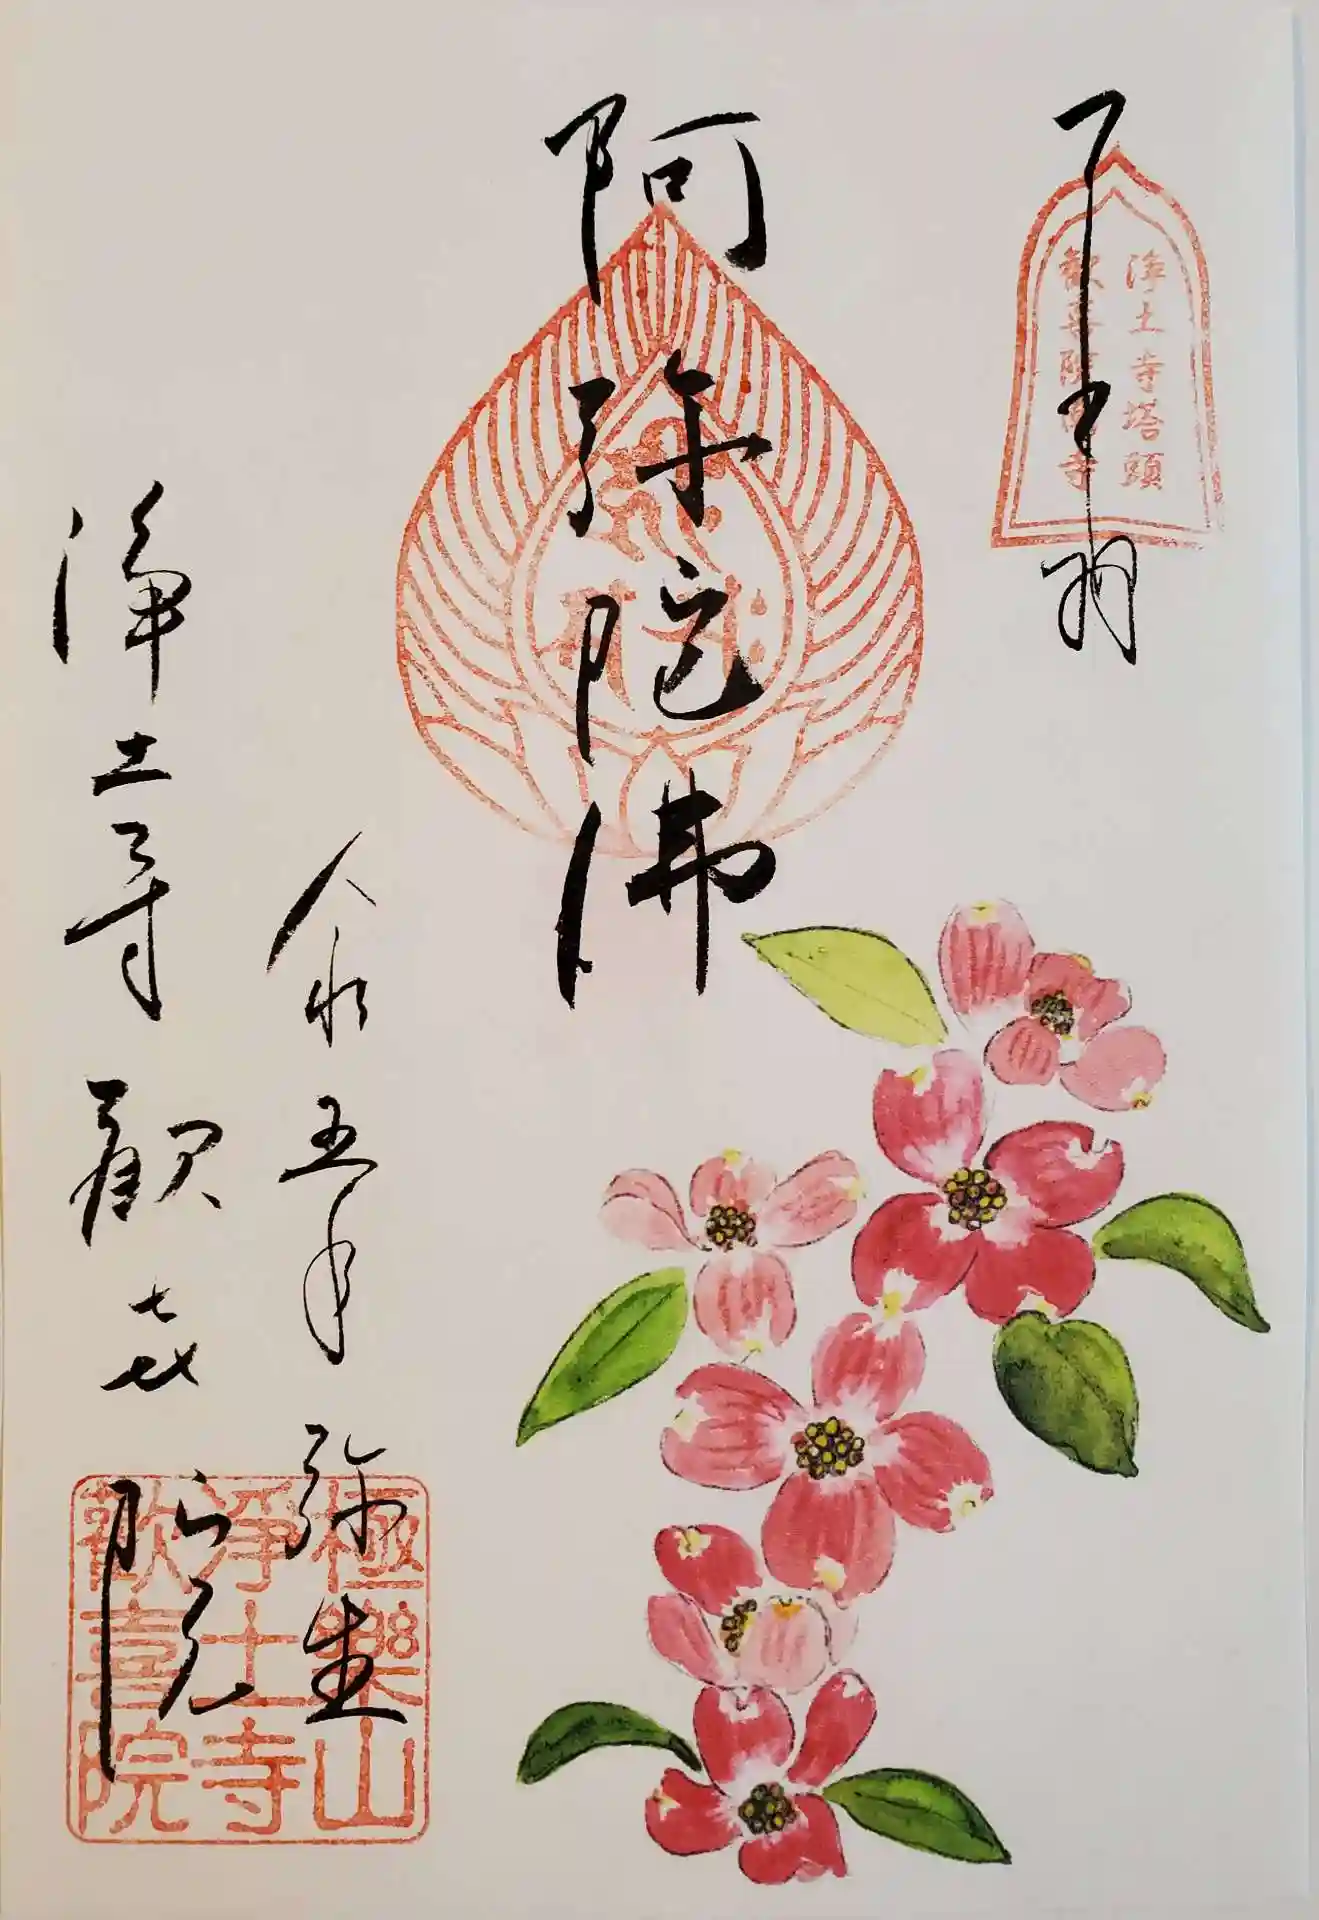 浄土寺塔頭
歓喜院
阿弥陀佛
令和五年 弥生
浄土寺 歓喜院
極樂山
淨土寺
歓喜院